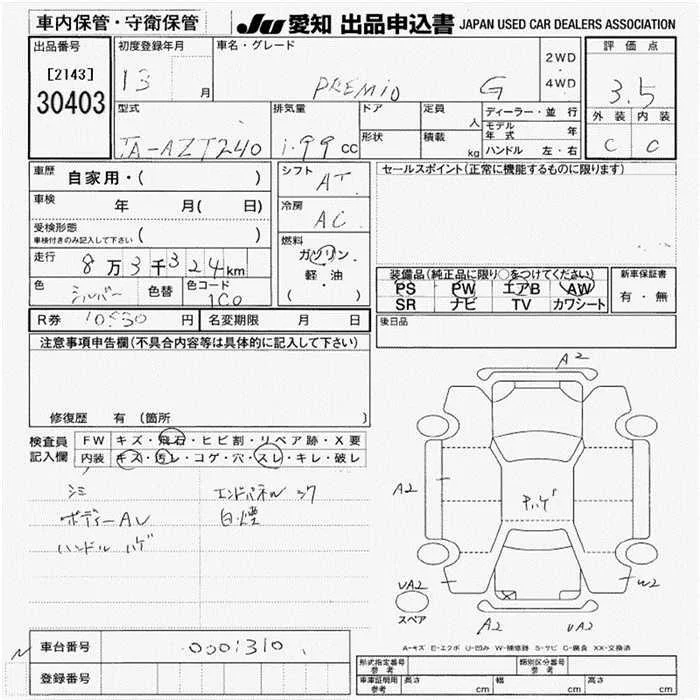 車内保管・守衛保管
JU 愛知 出品申込書 JAPAN USED CAR DEALERS ASSOCIATION
出品番号
[2143]
30403
初度登録年月
13 月
車名・グレード
PREMIO G
2WD
・
4WD
評価点
3.5
外装 内装
C C
型式
TA-AZT240
排気量
1.99 cc
ドア
形状
定員 人
積載 kg
ディーラー・並行
モデル年式 年
ハンドル 左・右
車歴 自家用・( )
車検 年 月( 日)
受検形態
車検付きのみ記入して下さい ( )
走行 8万3千324km
色 シルバー 色替 色コード 1C0
シフト AT
冷房 AC
燃料
ガソリン
軽・油
( ・ )
セールスポイント(正常に機能するものに限ります)
装備品(純正品に限り○をつけてください)
PS PW エアB AW
SR ナビ TV カワシート
新車保証書
有・無
R券 10530 円 名変期限 月 日
後日品
注意事項申告欄(不具合内容等は具体的に記入して下さい)
修復歴 有(箇所 )
検査員記入欄
FW キズ・飛石・ヒビ割・リペア跡・X要
内装 キズ・汚レ・コゲ・穴・スレ・キレ・破レ
シミ
ボディーAU
ハンドル ハゲ
エンドパネル
白煙
A2
A2
ハゲ
UA2
W2
スペア
A2
UA2
A-キズ E-エクボ U-凹み W-補修跡 S-サビ C-腐食 XX-交換済
車台番号 0001310
登録番号
形式指定番号
参考
類別区分番号
参考
車庫証明用
参考
長さ cm 幅 cm 高さ cm